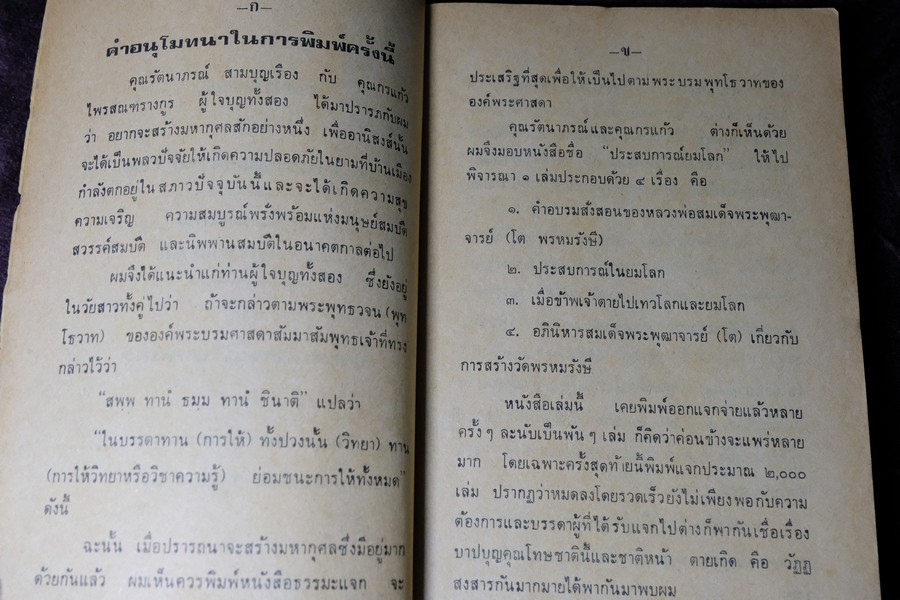 —ก—
คำอนุโมทนาในการพิมพ์ครั้งนี้
คุณรัตนาภรณ์ สามบุญเรือง กับ คุณกรแก้ว
ไพรสณฑรางกูร ผู้ใจบุญทั้งสอง ได้มาปรารภกับผม
ว่า อยากจะสร้างมหากุศลสักอย่างหนึ่ง เพื่ออานิสงส์นั้น
จะได้เป็นพลวปัจจัยให้เกิดความปลอดภัยในยามที่บ้านเมือง
กำลังตกอยู่ในสภาวปัจจุบันนี้และจะได้เกิดความสุข
ความเจริญ ความสมบูรณ์พรั่งพร้อมแห่งมนุษย์สมบัติ
สวรรค์สมบัติ และนิพพานสมบัติในอนาคตกาลต่อไป
ผมจึงได้แนะนำแก่ท่านผู้ใจบุญทั้งสอง ซึ่งยังอยู่
ในวัยสาวทั้งคู่ไปว่า ถ้าจะกล่าวตามพระพุทธวจน (พุท
โธวาท) ขององค์พระบรมศาสดาสัมมาสัมพุทธเจ้าที่ทรง
กล่าวไว้ว่า
“สพฺพ ทานํ ธมฺม ทานํ ชินาติ” แปลว่า
“ในบรรดาทาน (การให้) ทั้งปวงนั้น (วิทยา) ทาน
(การให้วิทยาหรือวิชาความรู้) ย่อมชนะการให้ทั้งหมด”
ดังนี้
ฉะนั้น เมื่อปรารถนาจะสร้างมหากุศลซึ่งมีอยู่มาก
ด้วยกันแล้ว ผมเห็นควรพิมพ์หนังสือธรรมะแจก จะ
—ข—
ประเสริฐที่สุดเพื่อให้เป็นไปตามพระบรมพุทโธวาทของ
องค์พระศาสดา
คุณรัตนาภรณ์และคุณกรแก้ว ต่างก็เห็นด้วย
ผมจึงมอบหนังสือชื่อ “ประสบการณ์ยมโลก” ให้ไป
พิจารณา ๑ เล่มประกอบด้วย ๔ เรื่อง คือ
๑. คำอบรมสั่งสอนของหลวงพ่อสมเด็จพระพุฒา-
จารย์ (โต พรหมรังษี)
๒. ประสบการณ์ในยมโลก
๓. เมื่อข้าพเจ้าตายไปเทวโลกและยมโลก
๔. อภินิหารสมเด็จพระพุฒาจารย์ (โต) เกี่ยวกับ
การสร้างวัดพรหมรังษี
หนังสือเล่มนี้ เคยพิมพ์ออกแจกจ่ายแล้วหลาย
ครั้ง ๆ ละนับเป็นพัน ๆ เล่ม ก็คิดว่าค่อนข้างจะแพร่หลาย
มาก โดยเฉพาะครั้งสุดท้ายนี้พิมพ์แจกประมาณ ๒,๐๐๐
เล่ม ปรากฏว่าหมดลงโดยรวดเร็วยังไม่เพียงพอกับความ
ต้องการและบรรดาผู้ที่ได้รับแจกไปต่างก็พากันเชื่อเรื่อง
บาปบุญคุณโทษชาตินี้และชาติหน้า ตายเกิด คือ วัฏฏ
สงสารกันมากมายได้พากันมาพบผม